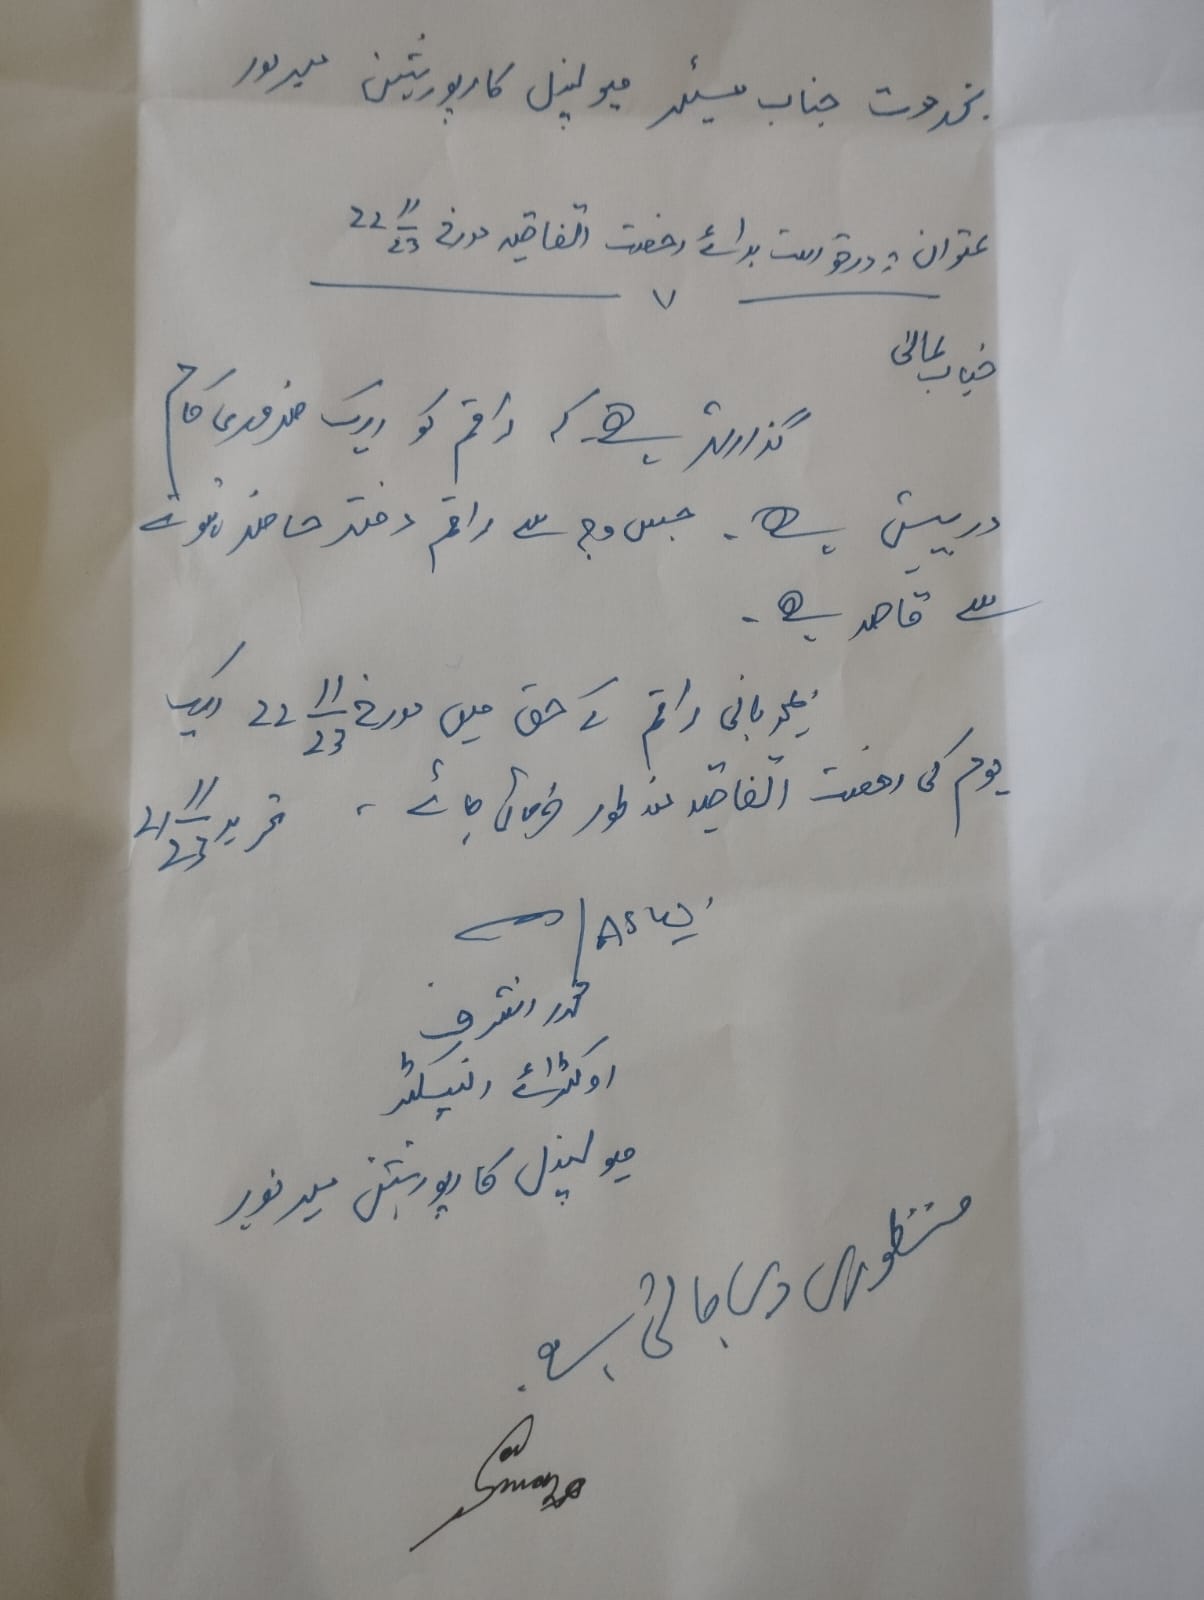 بخدمت جناب میئر میونسپل کارپوریشن میرپور
عنوان :۔ درخواست برائے رخصت اتفاقیہ مورخہ 22 11/23
جناب عالی
گذارش ہے کہ راقم کو ایک ضروری کام
درپیش ہے۔ جس وجہ سے راقم دفتر حاضر ہونے
سے قاصر ہے۔
مہربانی راقم کے حق میں مورخہ 22 11/23 ایک
یوم کی رخصت اتفاقیہ منظور فرمائی جائے ۔ تحریر 21 11/23
محمد اشرف
اوکٹرائے انسپکٹر
میونسپل کارپوریشن میرپور
منظوری دی جاتی ہے۔